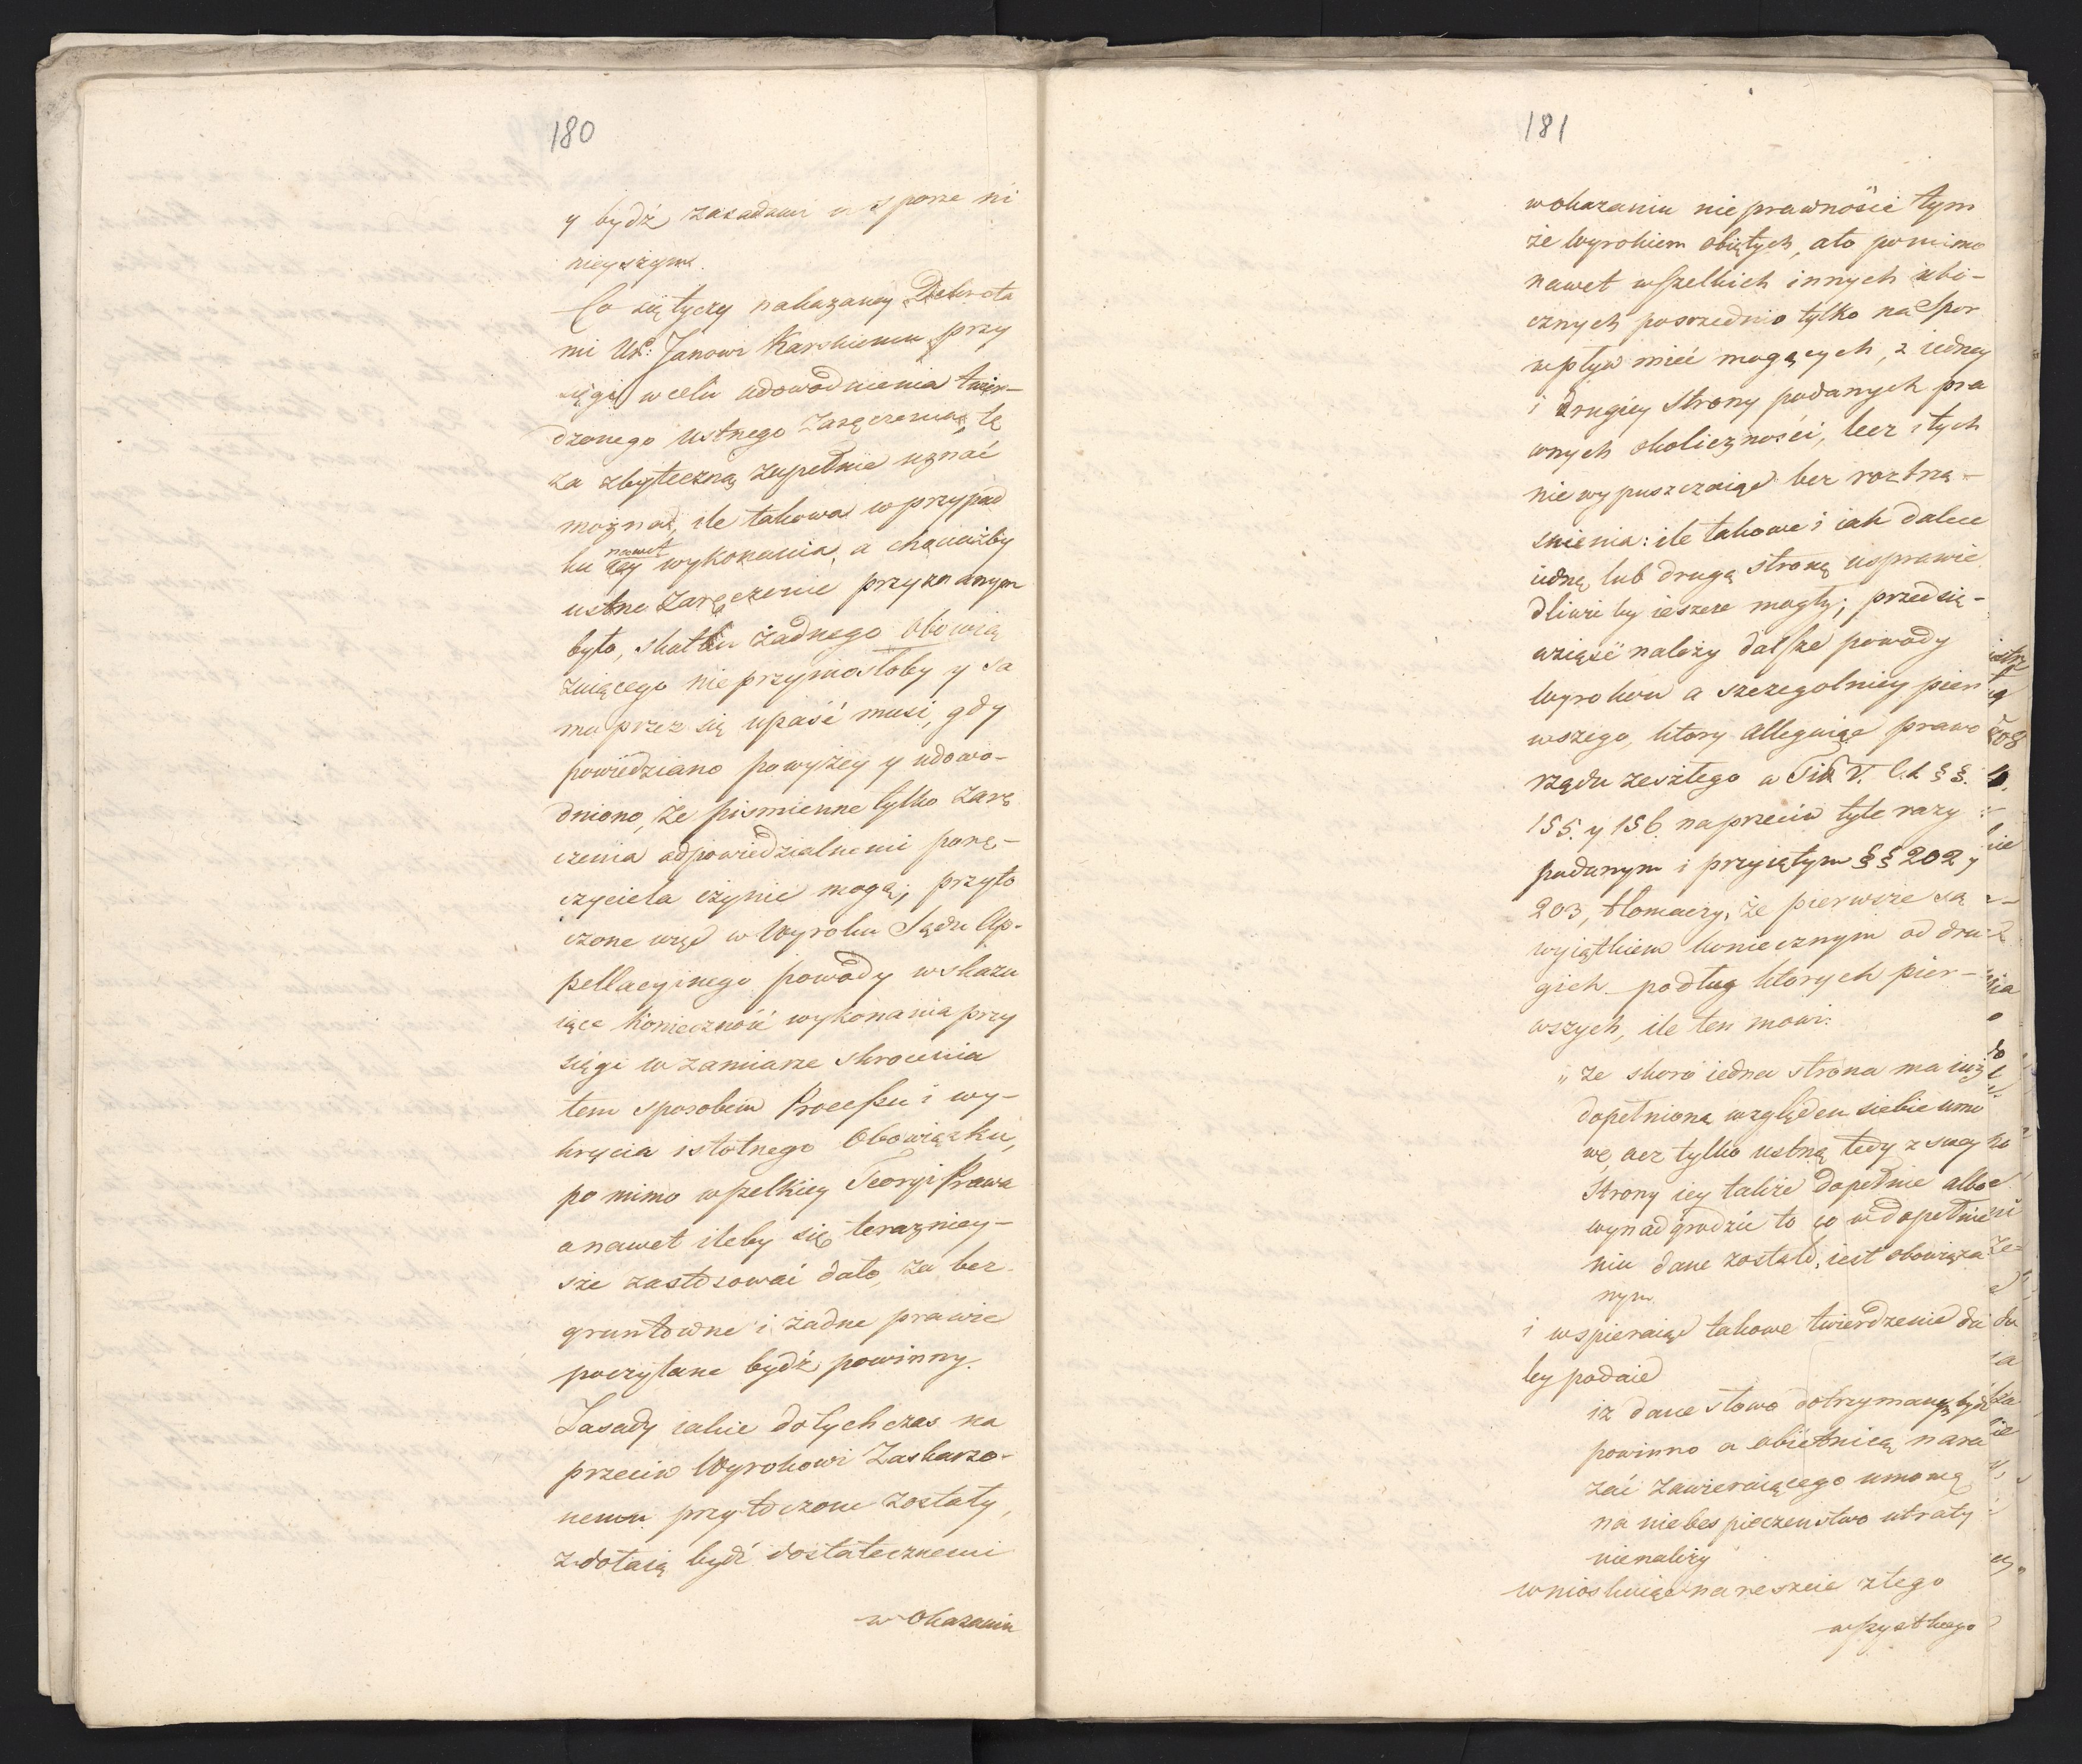 180
y bydź zasadami w sporze ni
nieyszym.
Co się tyczy nakazaney Dekreta
mi Ur: Janowi Karskiemu przy
sięgi w celu udowodnienia twier-
dzonego ustnego zaręczenia, tę
za zbyteczną zupełnie uznać
można, ile takowa w przypad
ku nawet iey wykonania, a chociażby
ustne zaręczenie przyznanym
było, skutku żadnego obowią
zuiącego nie przyniosłoby y sa
ma przez się upaść musi, gdy
powiedziano powyżey y udowo-
dniono, że pismienne tylko zarę
czenia odpowiedzialnemi porę-
czyciela czynić mogą; przyto
czone więc w Wyroku Sądu Ap-
pellacyinego powody wskazu
iące konieczność wykonania przy
sięgi w zamiarze skrocenia
tem sposobem Processu i wy-
krycia istotnego Obowiązku,
po mimo wszelkiey Teoryi Prawa
a nawet ileby się terazniey-
sze zastosować dało, za bez-
gruntowne i żadne prawie
poczytane bydź powinny.
Zasady iakie dotychczas na
przeciw Wyrokowi Zaskarżo-
nemu przytoczone zostały,
zdołaią bydź dostatecznemi
w Okazaniu
181
w okazaniu nieprawności tym
że Wyrokiem obiętych, a to pomimo
nawet wszelkich innych ubo-
cznych posrzednio tylko na Spor
wpływ mieć mogących, z iedney
i drugiey Strony podanych pra
wnych okoliczności, lecz i tych
nie wypuszczaiąc bez roztrzą-
snienia: ile takowe i iak dalece
iedną lub drugą stronę usprawie
dliwi by ieszcze mogły; przedsię-
wziąść należy dalsze powody
Wyroków a szczegolniey pier
wszego, ktory allegaiąc prawo
rządu zeszłego w Tit. V. C. I. § §.
155. y 156. naprzeciw tyle razy
podanym i przyiętym § § 202 y
203, tłomaczy, że pierwsze są
wyiątkiem koniecznym od dru-
gich podług ktorych pier-
wszych, ile ten mowi:
„że skoro iedna strona ma iuż
dopełnioną względem siebie umo
wę acz tylko ustną tedy z swey
Strony iey także dopełnić albo
wynadgrodzić to co w dopełnie
niu dane zostało, iest obowiąza
nym.
i wspieraiąc takowe twierdzenie da
ley podaie
iż dane słowo dotrzymanym bydź
powinno a obietnicą nara
żać zawieraiącego umowę
na niebespieczenstwo utraty
nienależy
wnioskuiąc nareszcie z tego
wszystkiego